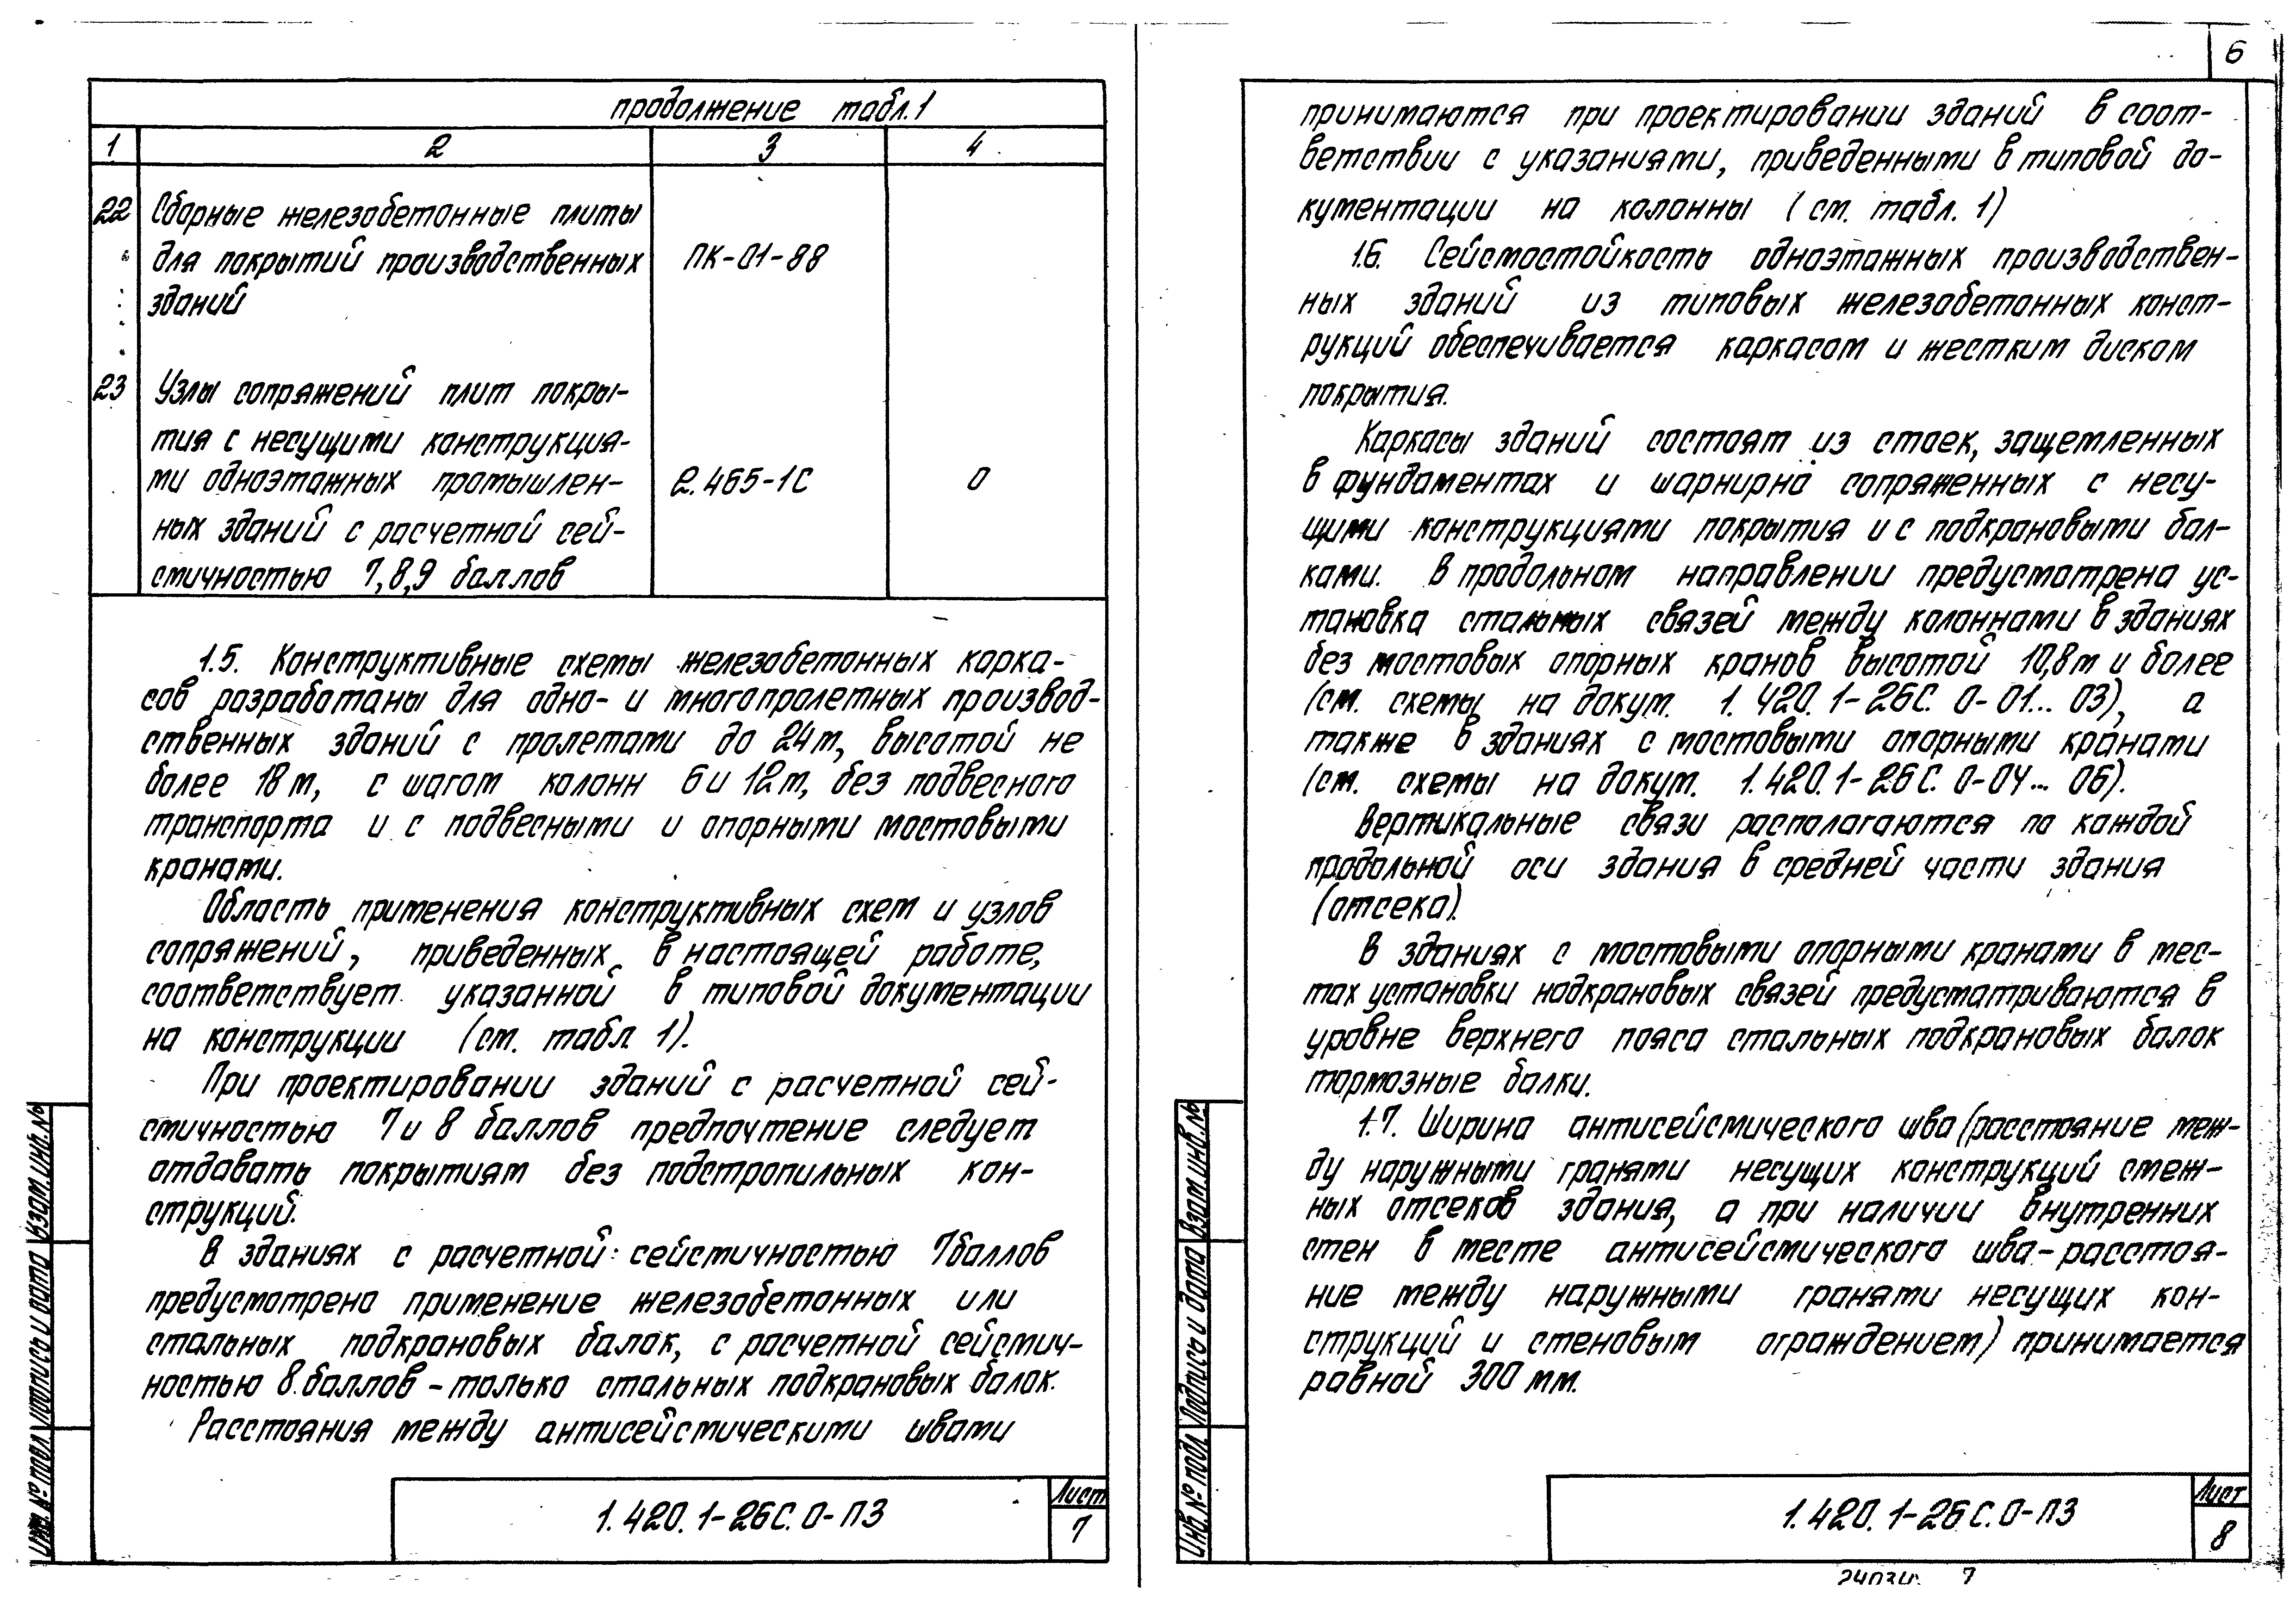 продолжение табл. 1
1 2 3 4
22 Сборные железобетонные плиты
для покрытий производственных ПК-01-88
зданий
23 Узлы сопряжений плит покры-
тия с несущими конструкция-
ми одноэтажных промышлен- 2.465-1С 0
ных зданий с расчетной сей-
смичностью 7,8,9 баллов
1.5. Конструктивные схемы железобетонных карка-
сов разработаны для одно- и многопролетных производ-
ственных зданий с пролетами до 24м, высотой не
более 18 м, с шагом колонн 6 и 12м, без подвесного
транспорта и с подвесными и опорными мостовыми
кранами.
Область применения конструктивных схем и узлов
сопряжений, приведенных в настоящей работе,
соответствует указанной в типовой документации
на конструкции (см. табл. 1).
При проектировании зданий с расчетной сей-
смичностью 7 и 8 баллов предпочтение следует
отдавать покрытиям без подстропильных кон-
струкций.
В зданиях с расчетной сейсмичностью 7баллов
предусмотрено применение железобетонных или
стальных подкрановых балок, с расчетной сейсмич-
ностью 8 баллов - только стальных подкрановых балок.
Расстояния между антисейсмическими швами
Взам.инв.№
Подпись и дата
Инв. № подл
1.420.1-26С.0-ПЗ
Лист
7
6
принимаются при проектировании зданий в соот-
ветствии с указаниями, приведенными в типовой до-
кументации на колонны (см. табл. 1)
1.6. Сейсмостойкость одноэтажных производствен-
ных зданий из типовых железобетонных конст-
рукций обеспечивается каркасом и жестким диском
покрытия.
Каркасы зданий состоят из стоек, защемленных
в фундаментах и шарнирно сопряженных с несу-
щими конструкциями покрытия и с подкрановыми бал-
ками. В продольном направлении предусмотрена ус-
тановка стальных связей между колоннами в зданиях
без мостовых опорных кранов высотой 10,8м и более
(см. схемы на докум. 1.420.1-26С.0-01... 03), а
также в зданиях с мостовыми опорными кранами
(см. схемы на докум. 1.420.1-26С.0-04... 06).
Вертикальные связи располагаются по каждой
продольной оси здания в средней части здания
(отсека).
В зданиях с мостовыми опорными кранами в мес-
тах установки надкрановых связей предусматриваются в
уровне верхнего пояса стальных подкрановых балок
тормозные балки.
1.7. Ширина антисейсмического шва (расстояние меж-
ду наружными гранями несущих конструкций смеж-
ных отсеков здания, а при наличии внутренних
стен в месте антисейсмического шва-расстоя-
ние между наружными гранями несущих кон-
струкций и стеновым ограждением) принимается
равной 300 мм.
Взам.инв.№
Подпись и дата
Инв.№ подл
1.420.1-26С.0-ПЗ
Лист
8
7